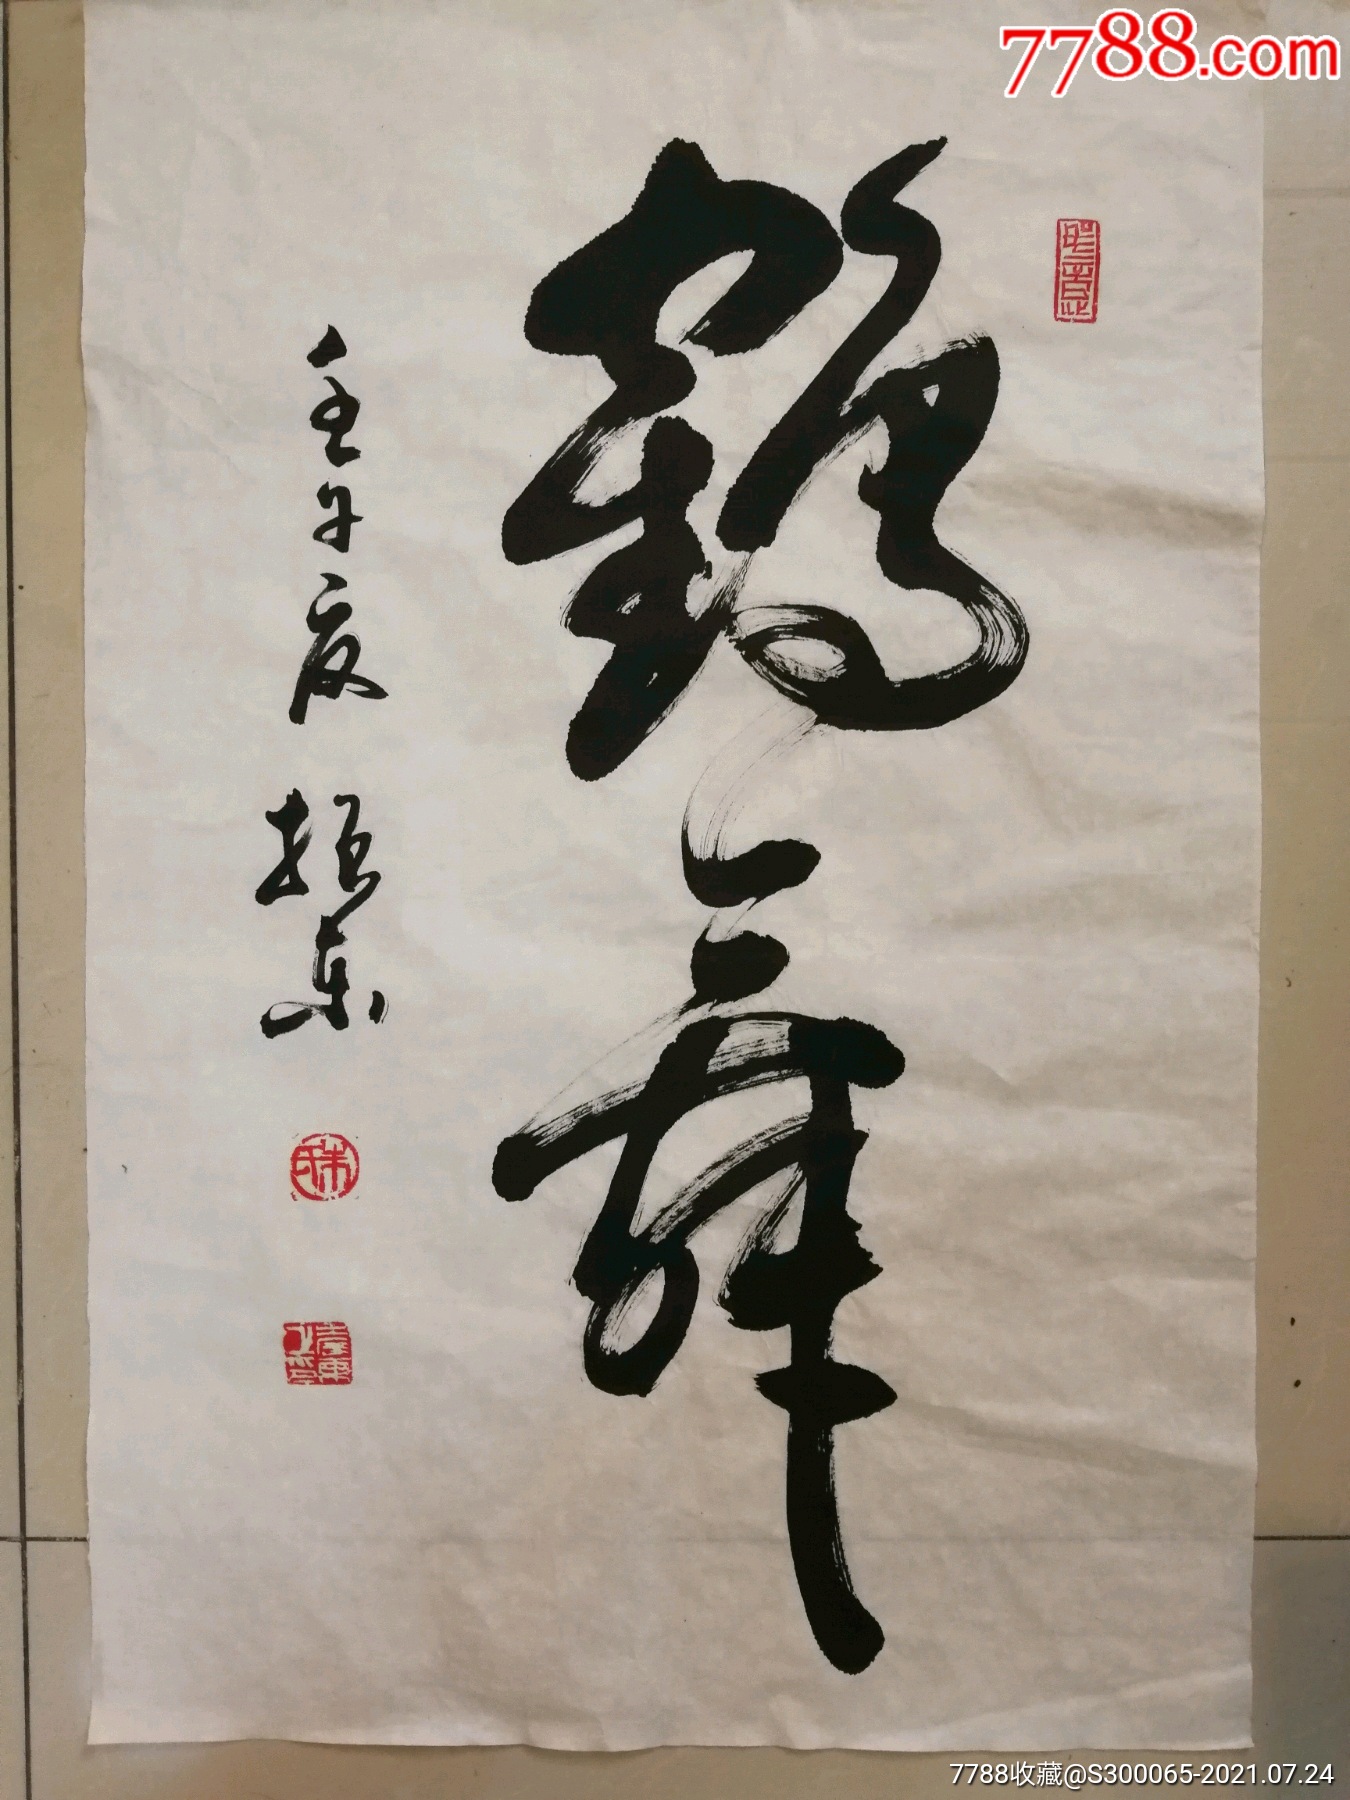 7788.com
鹤舞
壬午夏 振东
朱氏
7788收藏@S300065-2021.07.24